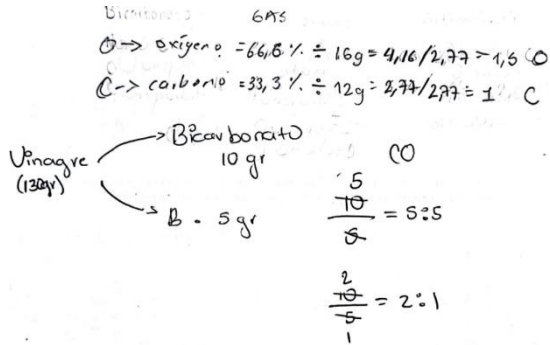 GAS
O → oxígeno = 66,6 % ÷ 16g = 4,16/2,77 = 1,5 O
C → carbono = 33,3 % ÷ 12g = 2,77/2,77 = 1 C
Vinagre (130gr)
→ Bicarbonato 10 gr
→ B. 5 gr
CO
5
10
5 = 5:5
2
10
5 = 2:1
1